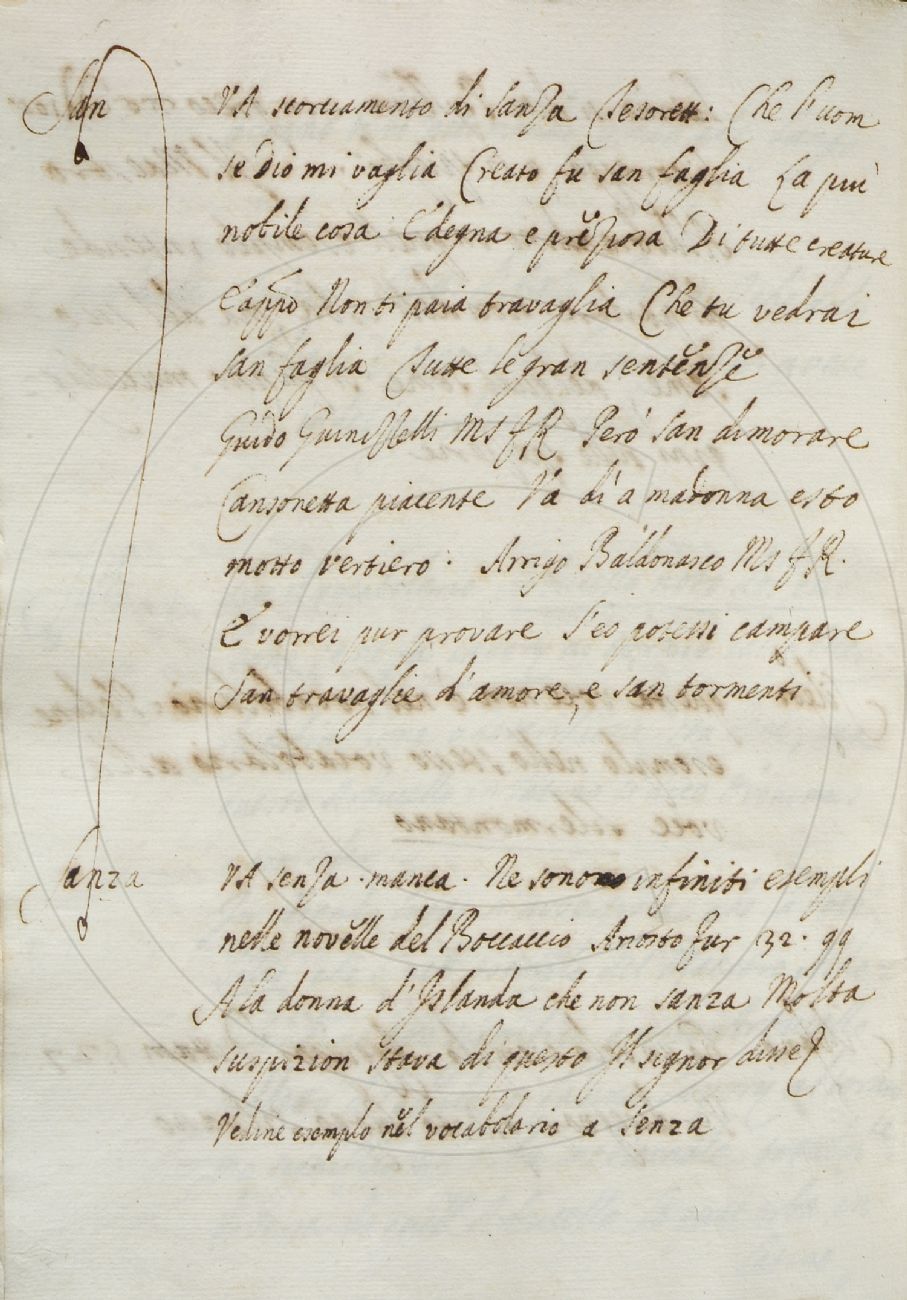 San VA scorciamento di Sanza Tesorett: Che l'uom
se Dio mi vaglia Creato fu san faglia La piu
nobile cosa E degna e preziosa Di tutte creature
E appo Non ti paia travaglia Che tu vedrai
san faglia Tutte le gran sentenze
Guido Guinizzelli MS f R Però san dimorare
Cansonetta piacente Va di a madonna esto
motto vertiero. Arrigo Baldonasco Ms f R.
E vorrei pur provare S'eo potessi campare
San travaglie d'amore, e san tormenti
Sanza VA senza. manca. Ne sono infiniti esempli
nelle novelle del Boccaccio Ariosto fur 32. 99
A la donna d'Islanda che non sanza Molta
suspizion stava di questo Il signor disse
Vedine esemplo nel vocabolario a Senza